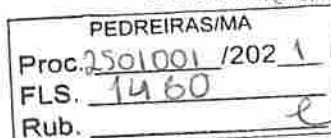 PEDREIRAS/MA
Proc. 2501001 /2021
FLS. 1460
Rub.